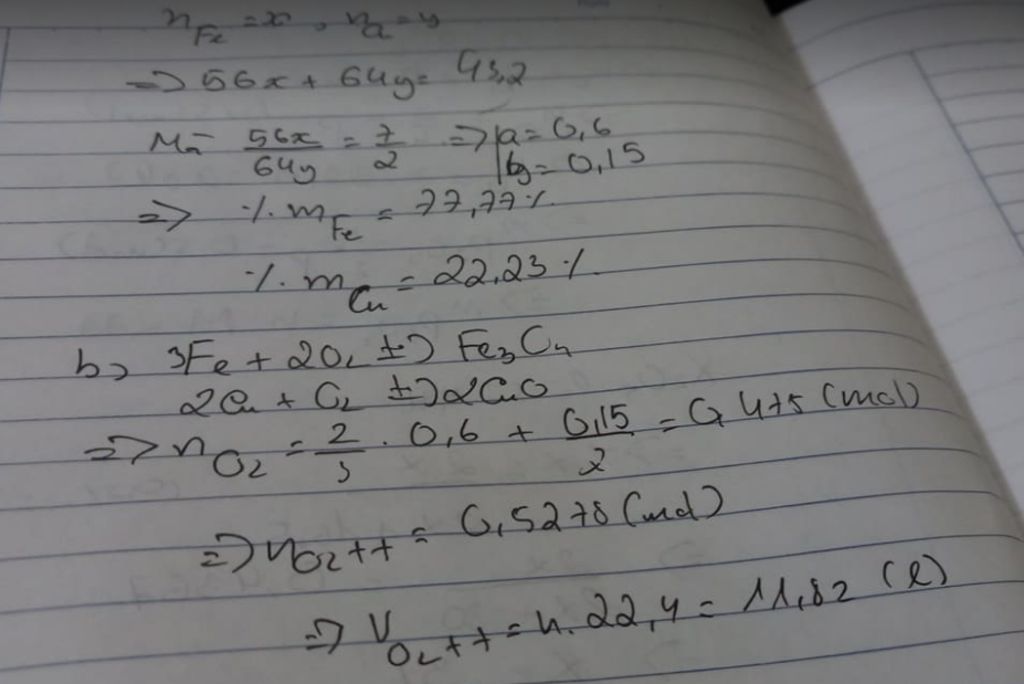 n_Fe = x, n_Cu = y
=> 56x + 64y = 43,2
M = 56x/64y = 7/2 => |a = 0,6 |y = 0,15
=> % m_Fe = 77,77%
% m_Cu = 22,23%
b, 3Fe + 2O₂ t=> Fe₃O₄
2Cu + O₂ t=> 2CuO
=> n_O₂ = 2/3 . 0,6 + 0,15/2 = 0,475 (mol)
=> n_O₂ tt = 0,5278 (mol)
=> V_O₂ tt = n. 22,4 = 11,82 (l)